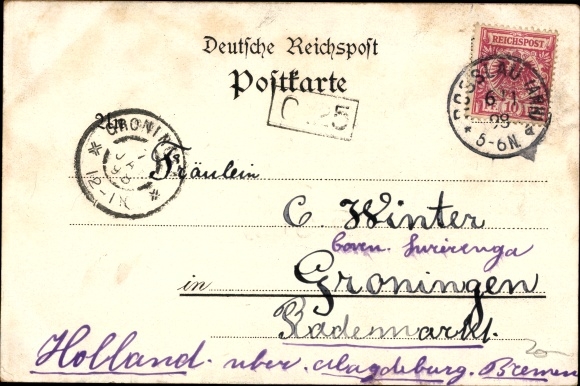 Deutsche Reichspost
Postkarte
REICHSPOST
10
ROSSLAU (ANH.)
6/1
98
* 5-6N.
GRONINGEN
12-1N
Fräulein
C. Winter
in Groningen
Rademarkt.
Holland. über Magdeburg. Bremen
20